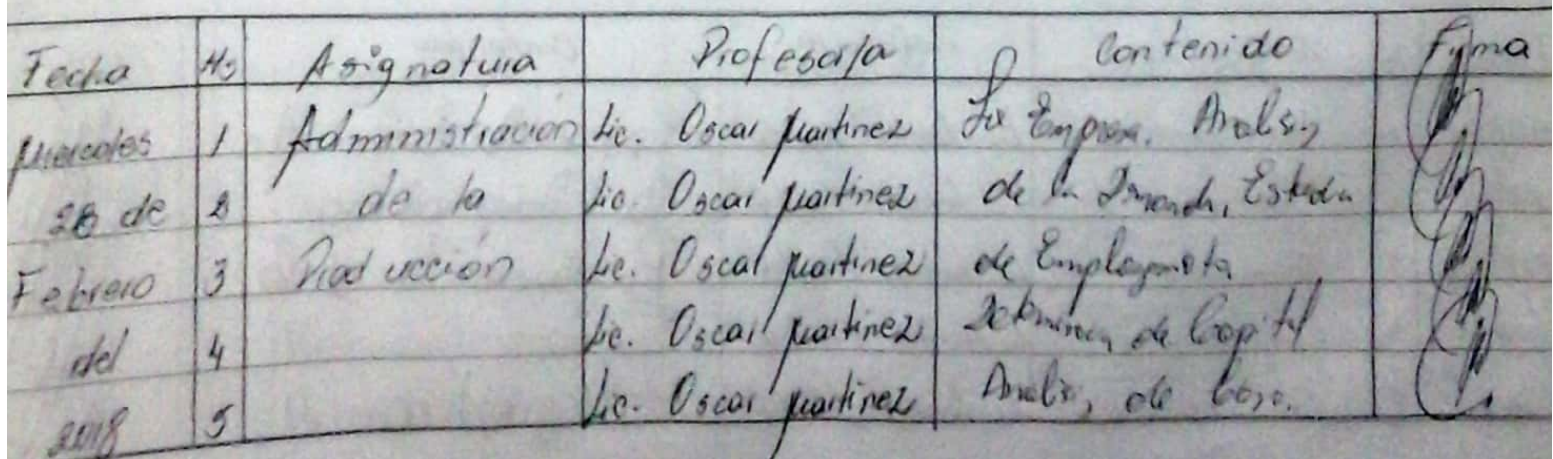 Fecha Hs Asignatura Profesor/a Contenido Firma
Miercoles 1 Administracion Lic. Oscar Martinez La Empresa. Analisis
28 de 2 de la Lic. Oscar Martinez de la Demanda, Estudio
Febrero 3 Producción Lic. Oscar Martinez de
del 4 Lic. Oscar Martinez de Capital
2018 5 Lic. Oscar Martinez Analisis de Caso.